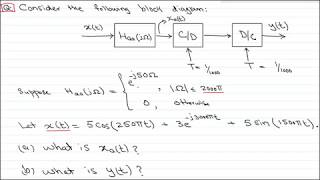 Q: Consider the following block diagram:
x(t) Haa(jΩ) x₀(t) C/D D/C y(t)
T = 1/1000 T = 1/1000
Suppose Haa(jΩ) = { e^-j50Ω, |Ω| ≤ 2000π
0, otherwise
Let x(t) = 5 cos(250πt) + 3e^-j3000πt + 5 sin(1500πt).
(a) what is x₀(t)?
(b) what is y(t)?